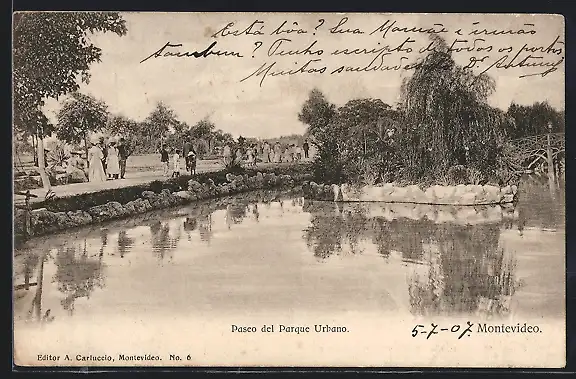 Está bôa? Sua Mamãe e irmãs
tambem? Tenho escripto de todos os portos
Muitas saudades, do Antunes
Paseo del Parque Urbano.
5-7-07. Montevideo.
Editor A. Carluccio, Montevideo. No. 6